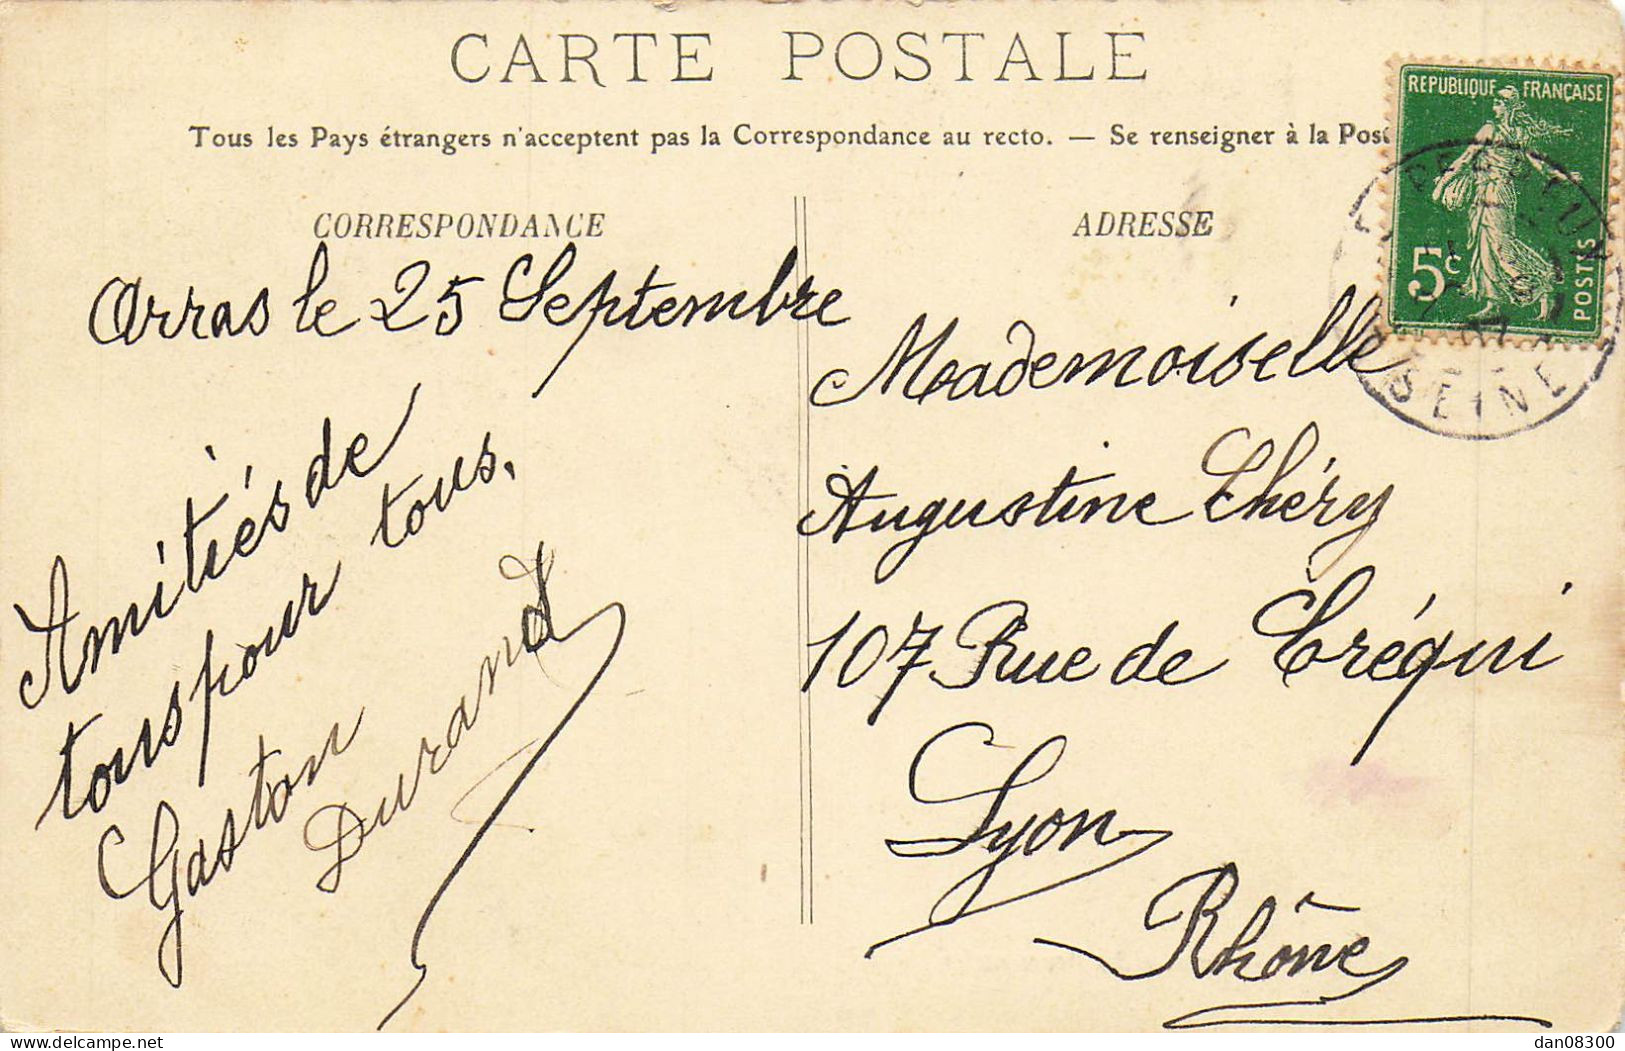 CARTE POSTALE
Tous les Pays étrangers n'acceptent pas la Correspondance au recto. — Se renseigner à la
CORRESPONDANCE
Arras le 25 Septembre
Amitiés de
tous pour tous.
Gaston
Durand
ADRESSE
REPUBLIQUE FRANÇAISE
5c
POSTES
SEINE
Mademoiselle
Augustine Théry
107 Rue de Créqui
Lyon
Rhône
delcampe.net
dan08300